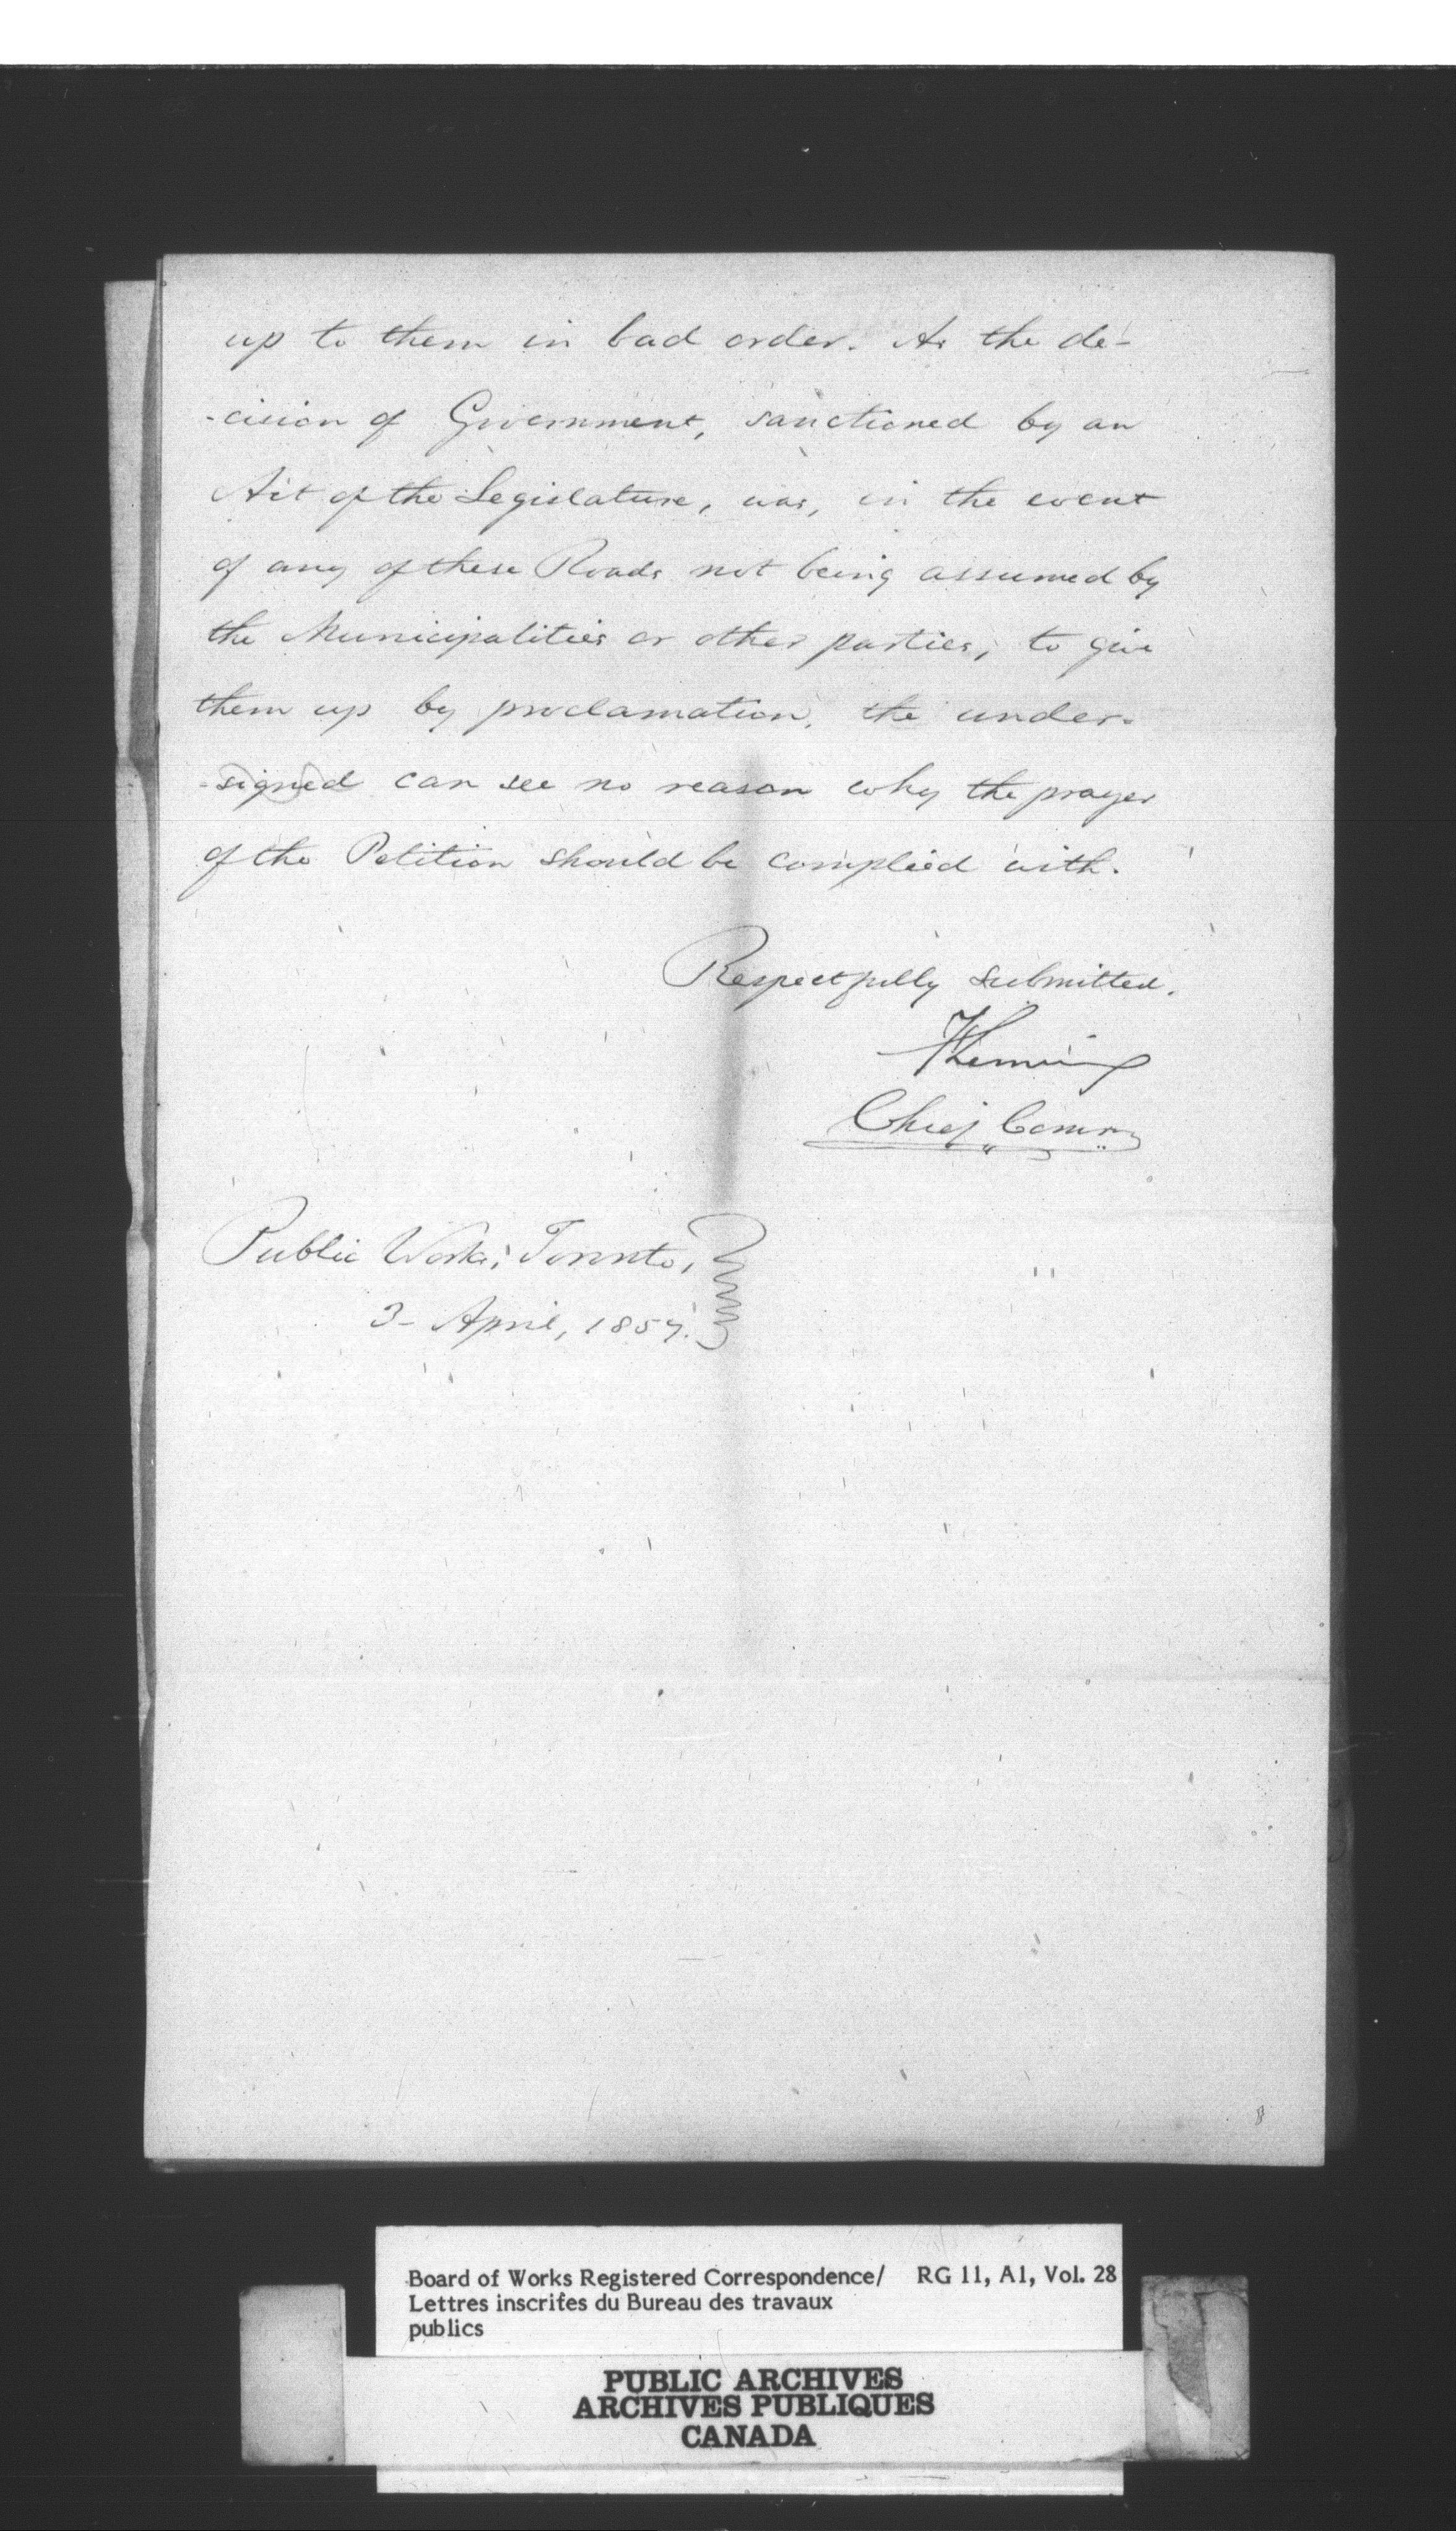 up to them in bad order. As the de-
-cision of Government, sanctioned by an
Act of the Legislature, was, in the event
of any of these Roads not being assumed by
the Municipalities or other parties, to give
them up by proclamation, the under-
-signed can see no reason why the prayer
of the Petition should be complied with.
Respectfully submitted.
Chief Comr.
Public Works, Toronto,
3- April, 1857.
Board of Works Registered Correspondence/ RG 11, A1, Vol. 28
Lettres inscrites du Bureau des travaux
publics
PUBLIC ARCHIVES
ARCHIVES PUBLIQUES
CANADA